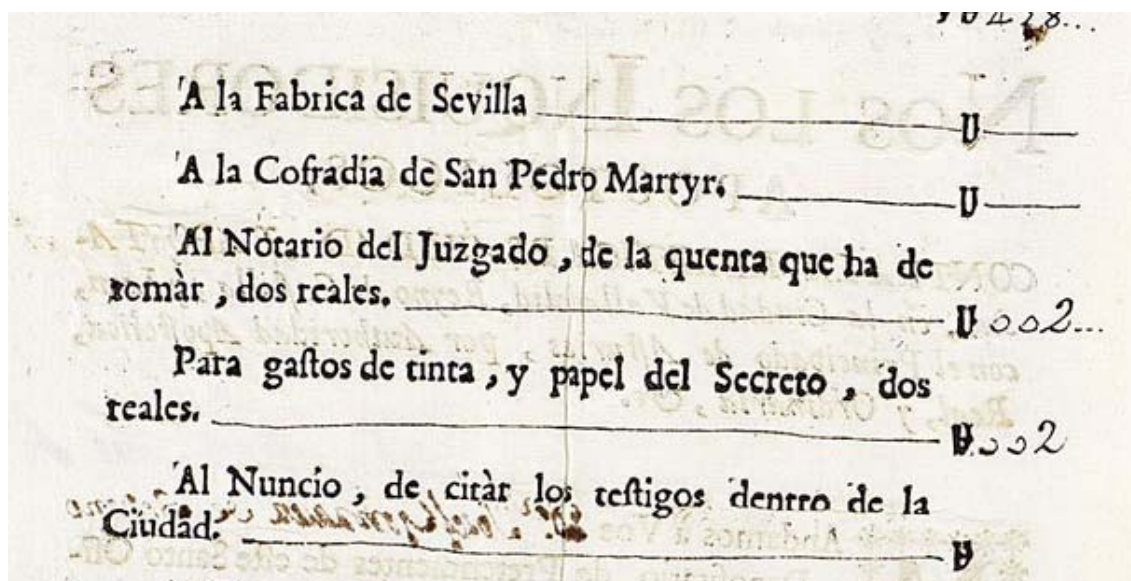 U428...
A la Fabrica de Sevilla U
A la Cofradia de San Pedro Martyr. U
Al Notario del Juzgado, de la quenta que ha de
tomàr, dos reales. U002...
Para gaſtos de tinta, y papel del Secreto, dos
reales. U002
Al Nuncio, de citàr los teſtigos dentro de la
Ciudad. U